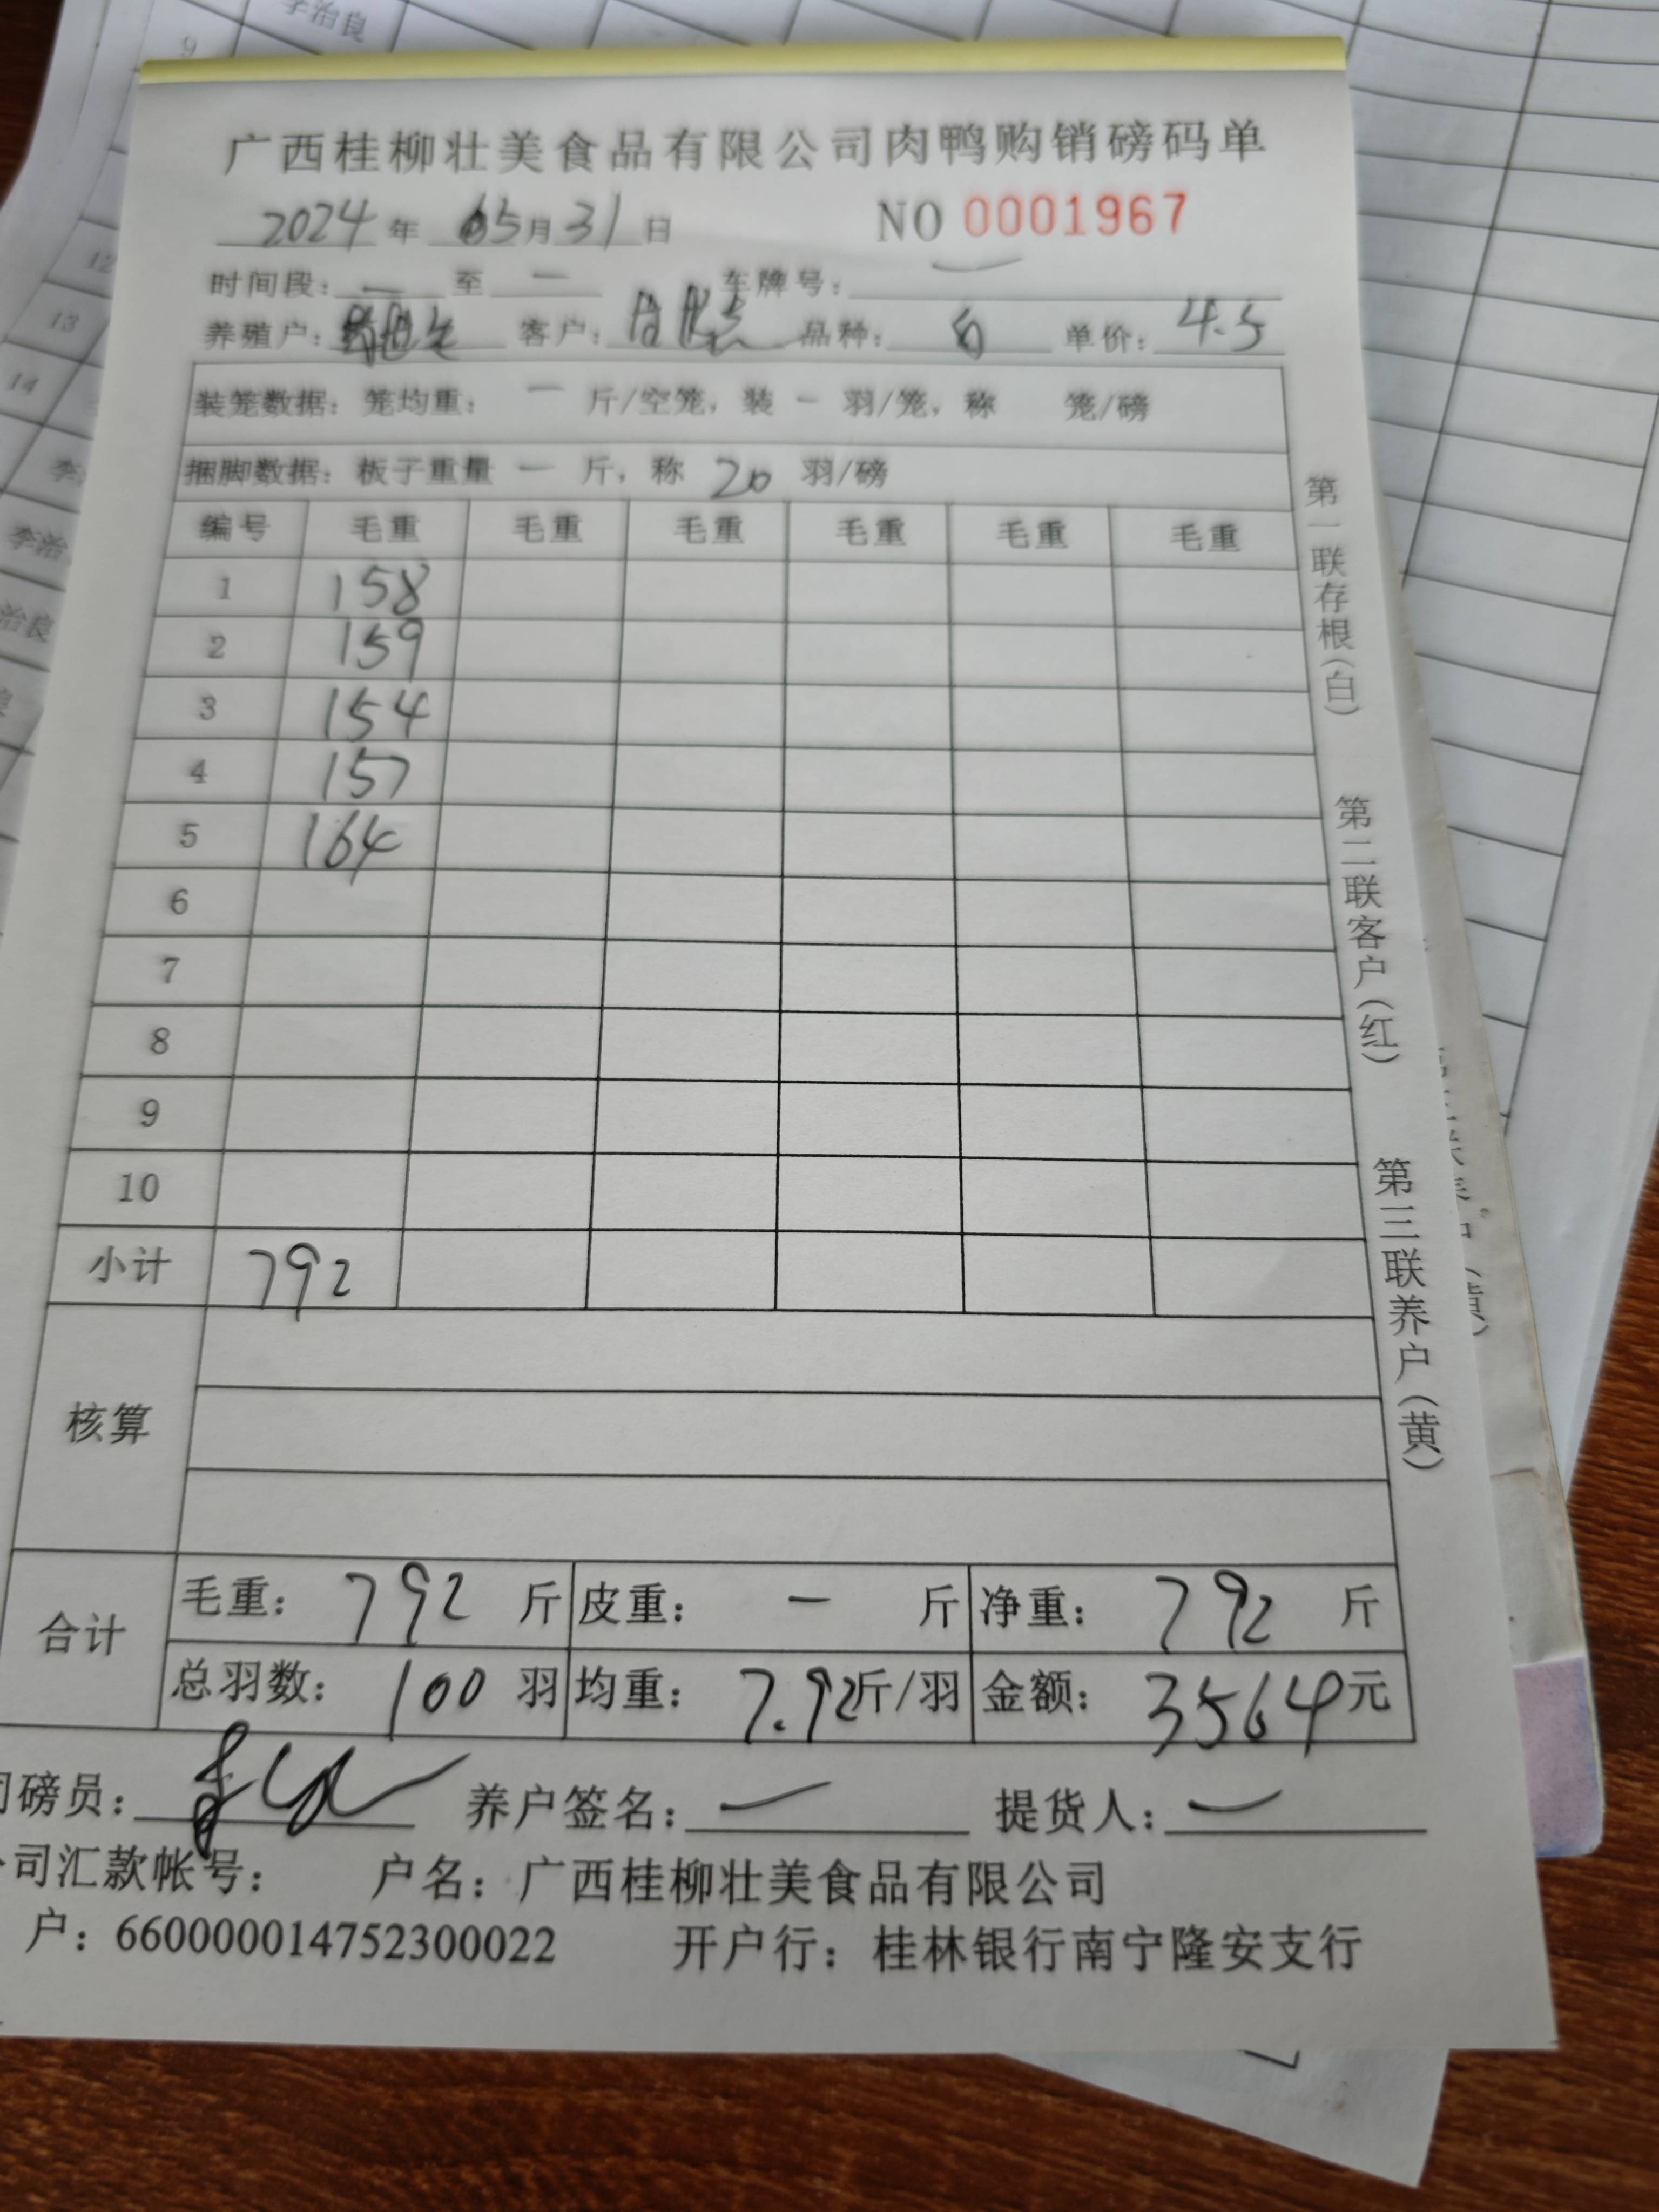 9 李治良
广西桂柳壮美食品有限公司肉鸭购销磅码单
2024 年 05 月 31 日 NO 0001967
时间段: — 至 — 车牌号: —
养殖户: 客户: 品种: 白 单价: 4.5
装笼数据: 笼均重: — 斤/空笼, 装 — 羽/笼, 称 笼/磅
捆脚数据: 板子重量 — 斤, 称 20 羽/磅
编号 毛重 毛重 毛重 毛重 毛重 毛重
1 158
2 159
3 154
4 157
5 164
6
7
8
9
10
小计 792
核算
合计 毛重: 792 斤 皮重: — 斤 净重: 792 斤
总羽数: 100 羽 均重: 7.92 斤/羽 金额: 3564 元
司磅员: 养户签名: — 提货人: —
司汇款帐号: 户名: 广西桂柳壮美食品有限公司
户: 660000014752300022 开户行: 桂林银行南宁隆安支行
第一联存根(白) 第二联客户(红) 第三联养户(黄)
12
13
14
李治
治良